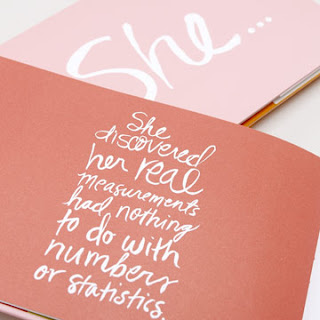 She...
She
discovered
her real
measurements
had nothing
to do with
numbers
or statistics.